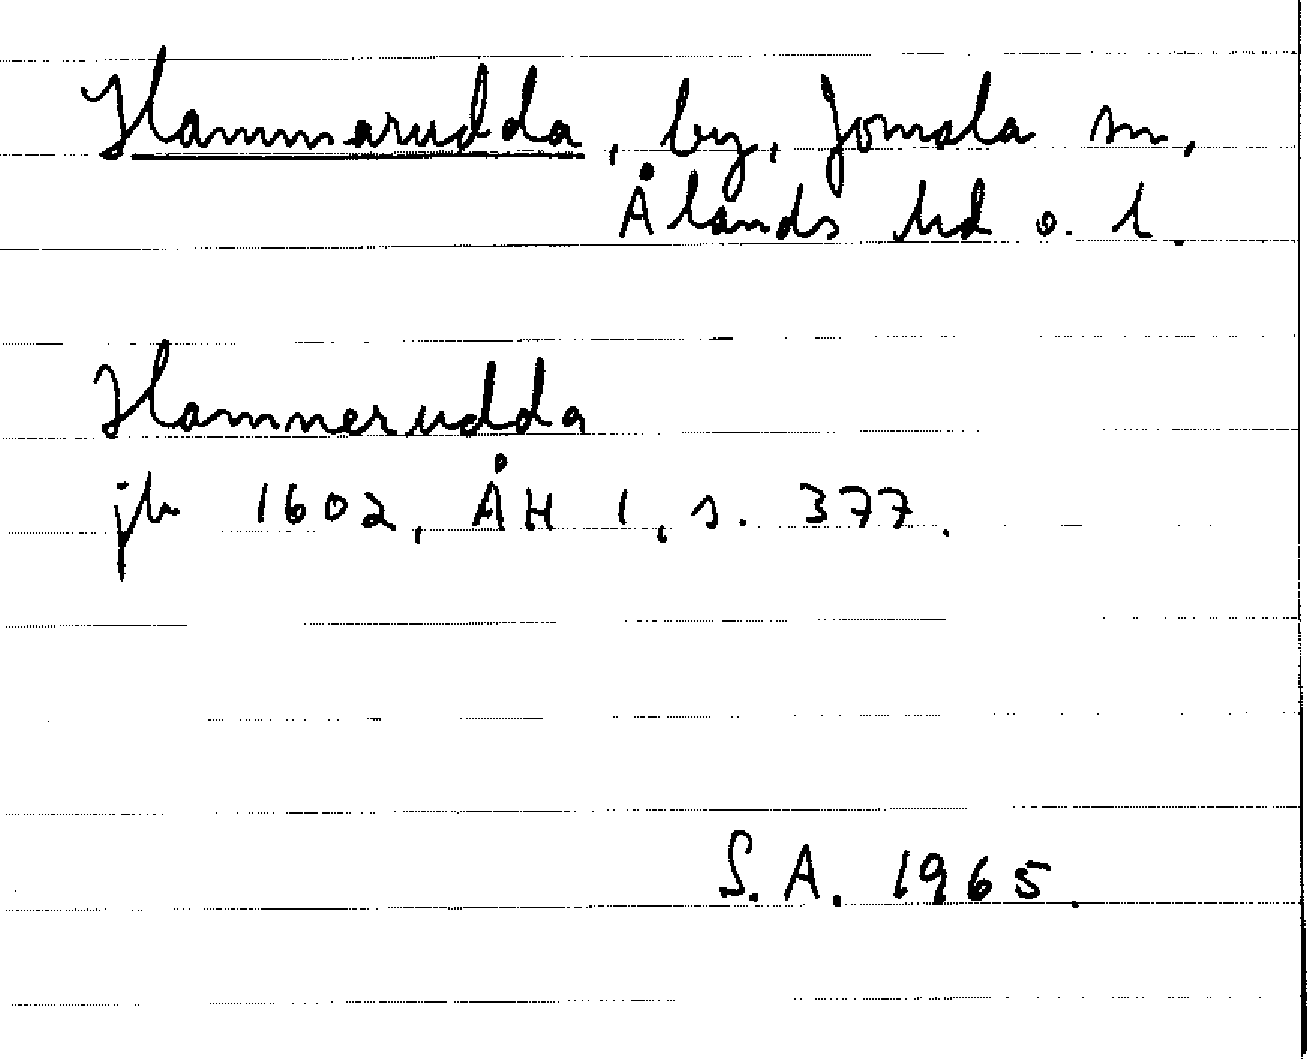 Hammarudda, by, Jomala sn,
Ålands hd o. l.
Hamnerudda
jb 1602, ÅH 1, s. 377.
S.A. 1965.